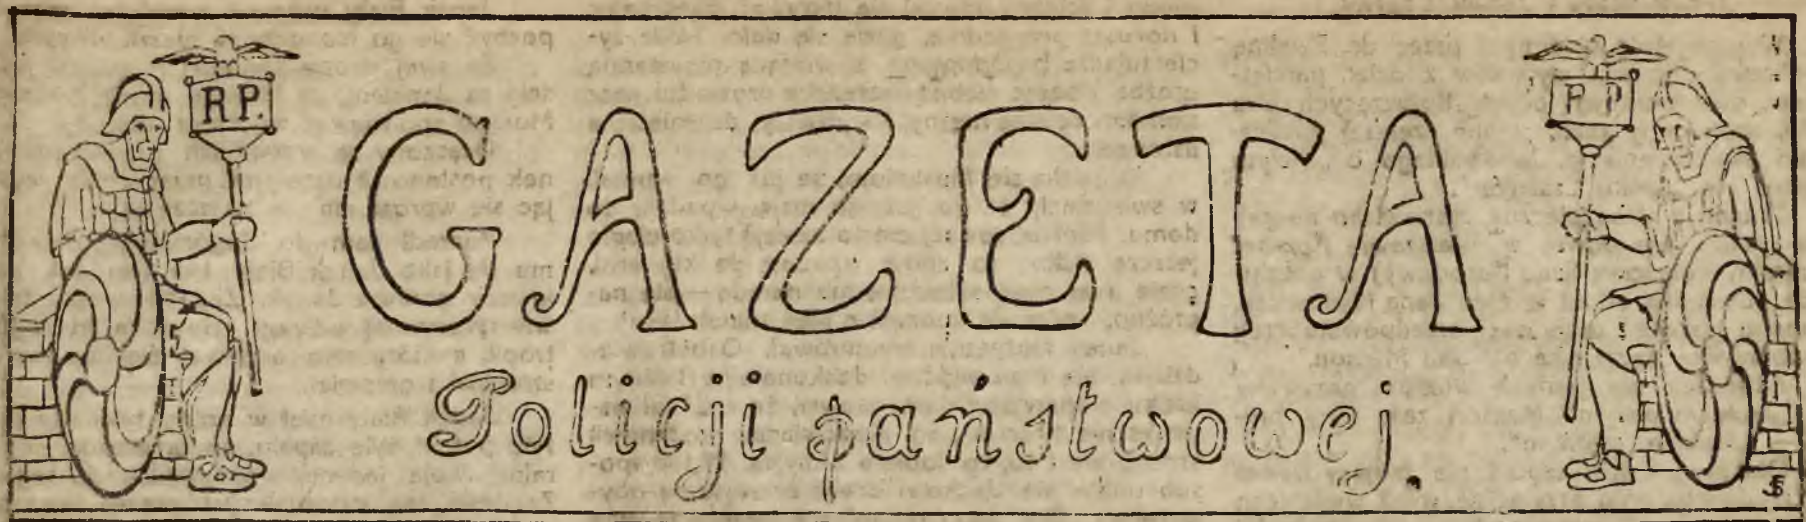 R.P.
P P
GAZETA
Policji państwowej.